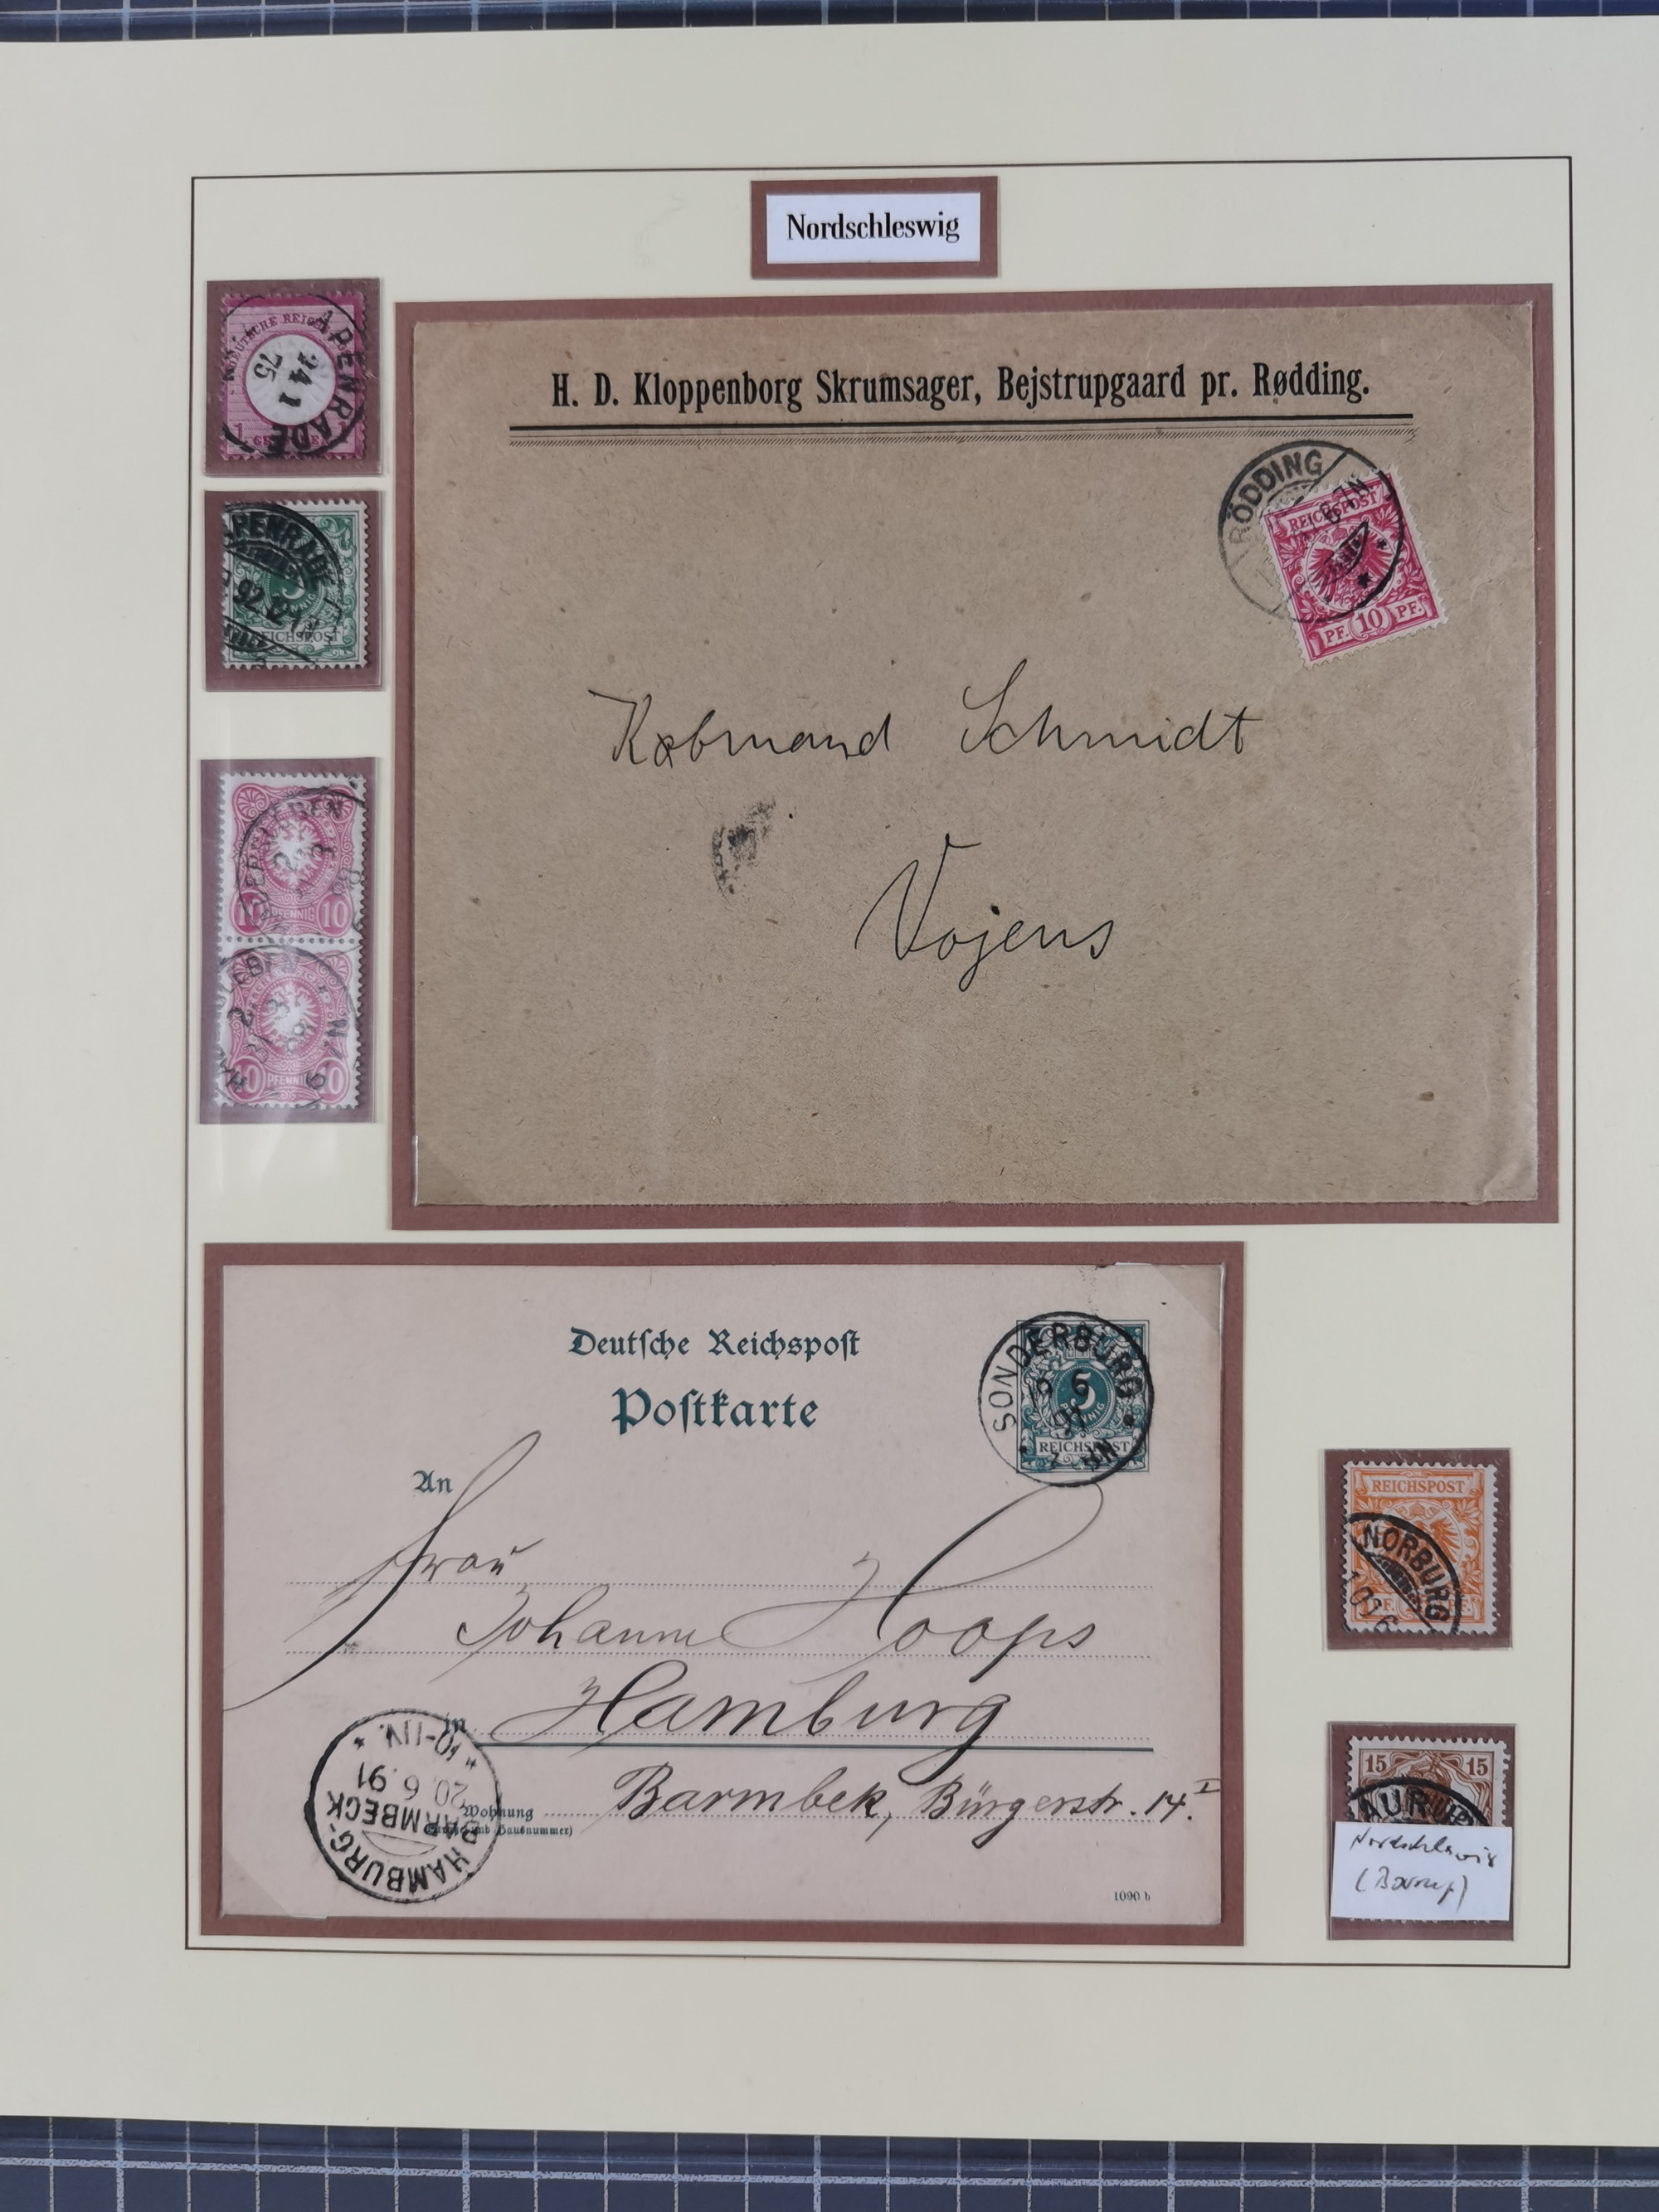 Nordschleswig
DEUTSCHE REICHS
APENRADE
24 1
75
1
APENRADE
92
REICHSPOST
H. D. Kloppenborg Skrumsager, Bejstrupgaard pr. Rødding.
RÖDDING
REICHSPOST
PF. 10 PF.
Købmand Schmidt
Vojens
10 PFENNIG 10
10 PFENNIG 10
Deutsche Reichspost
Postkarte
SONDERBURG
5
REICHSPOST
An
Frau
Johanne Hoops
in Hamburg
Wohnung Barmbek, Bürgerstr. 14 I
HAMBURG-
BARMBECK
20.6.91
10-11V.
1090 h
REICHSPOST
NORBURG
15 15
Nordschleswig